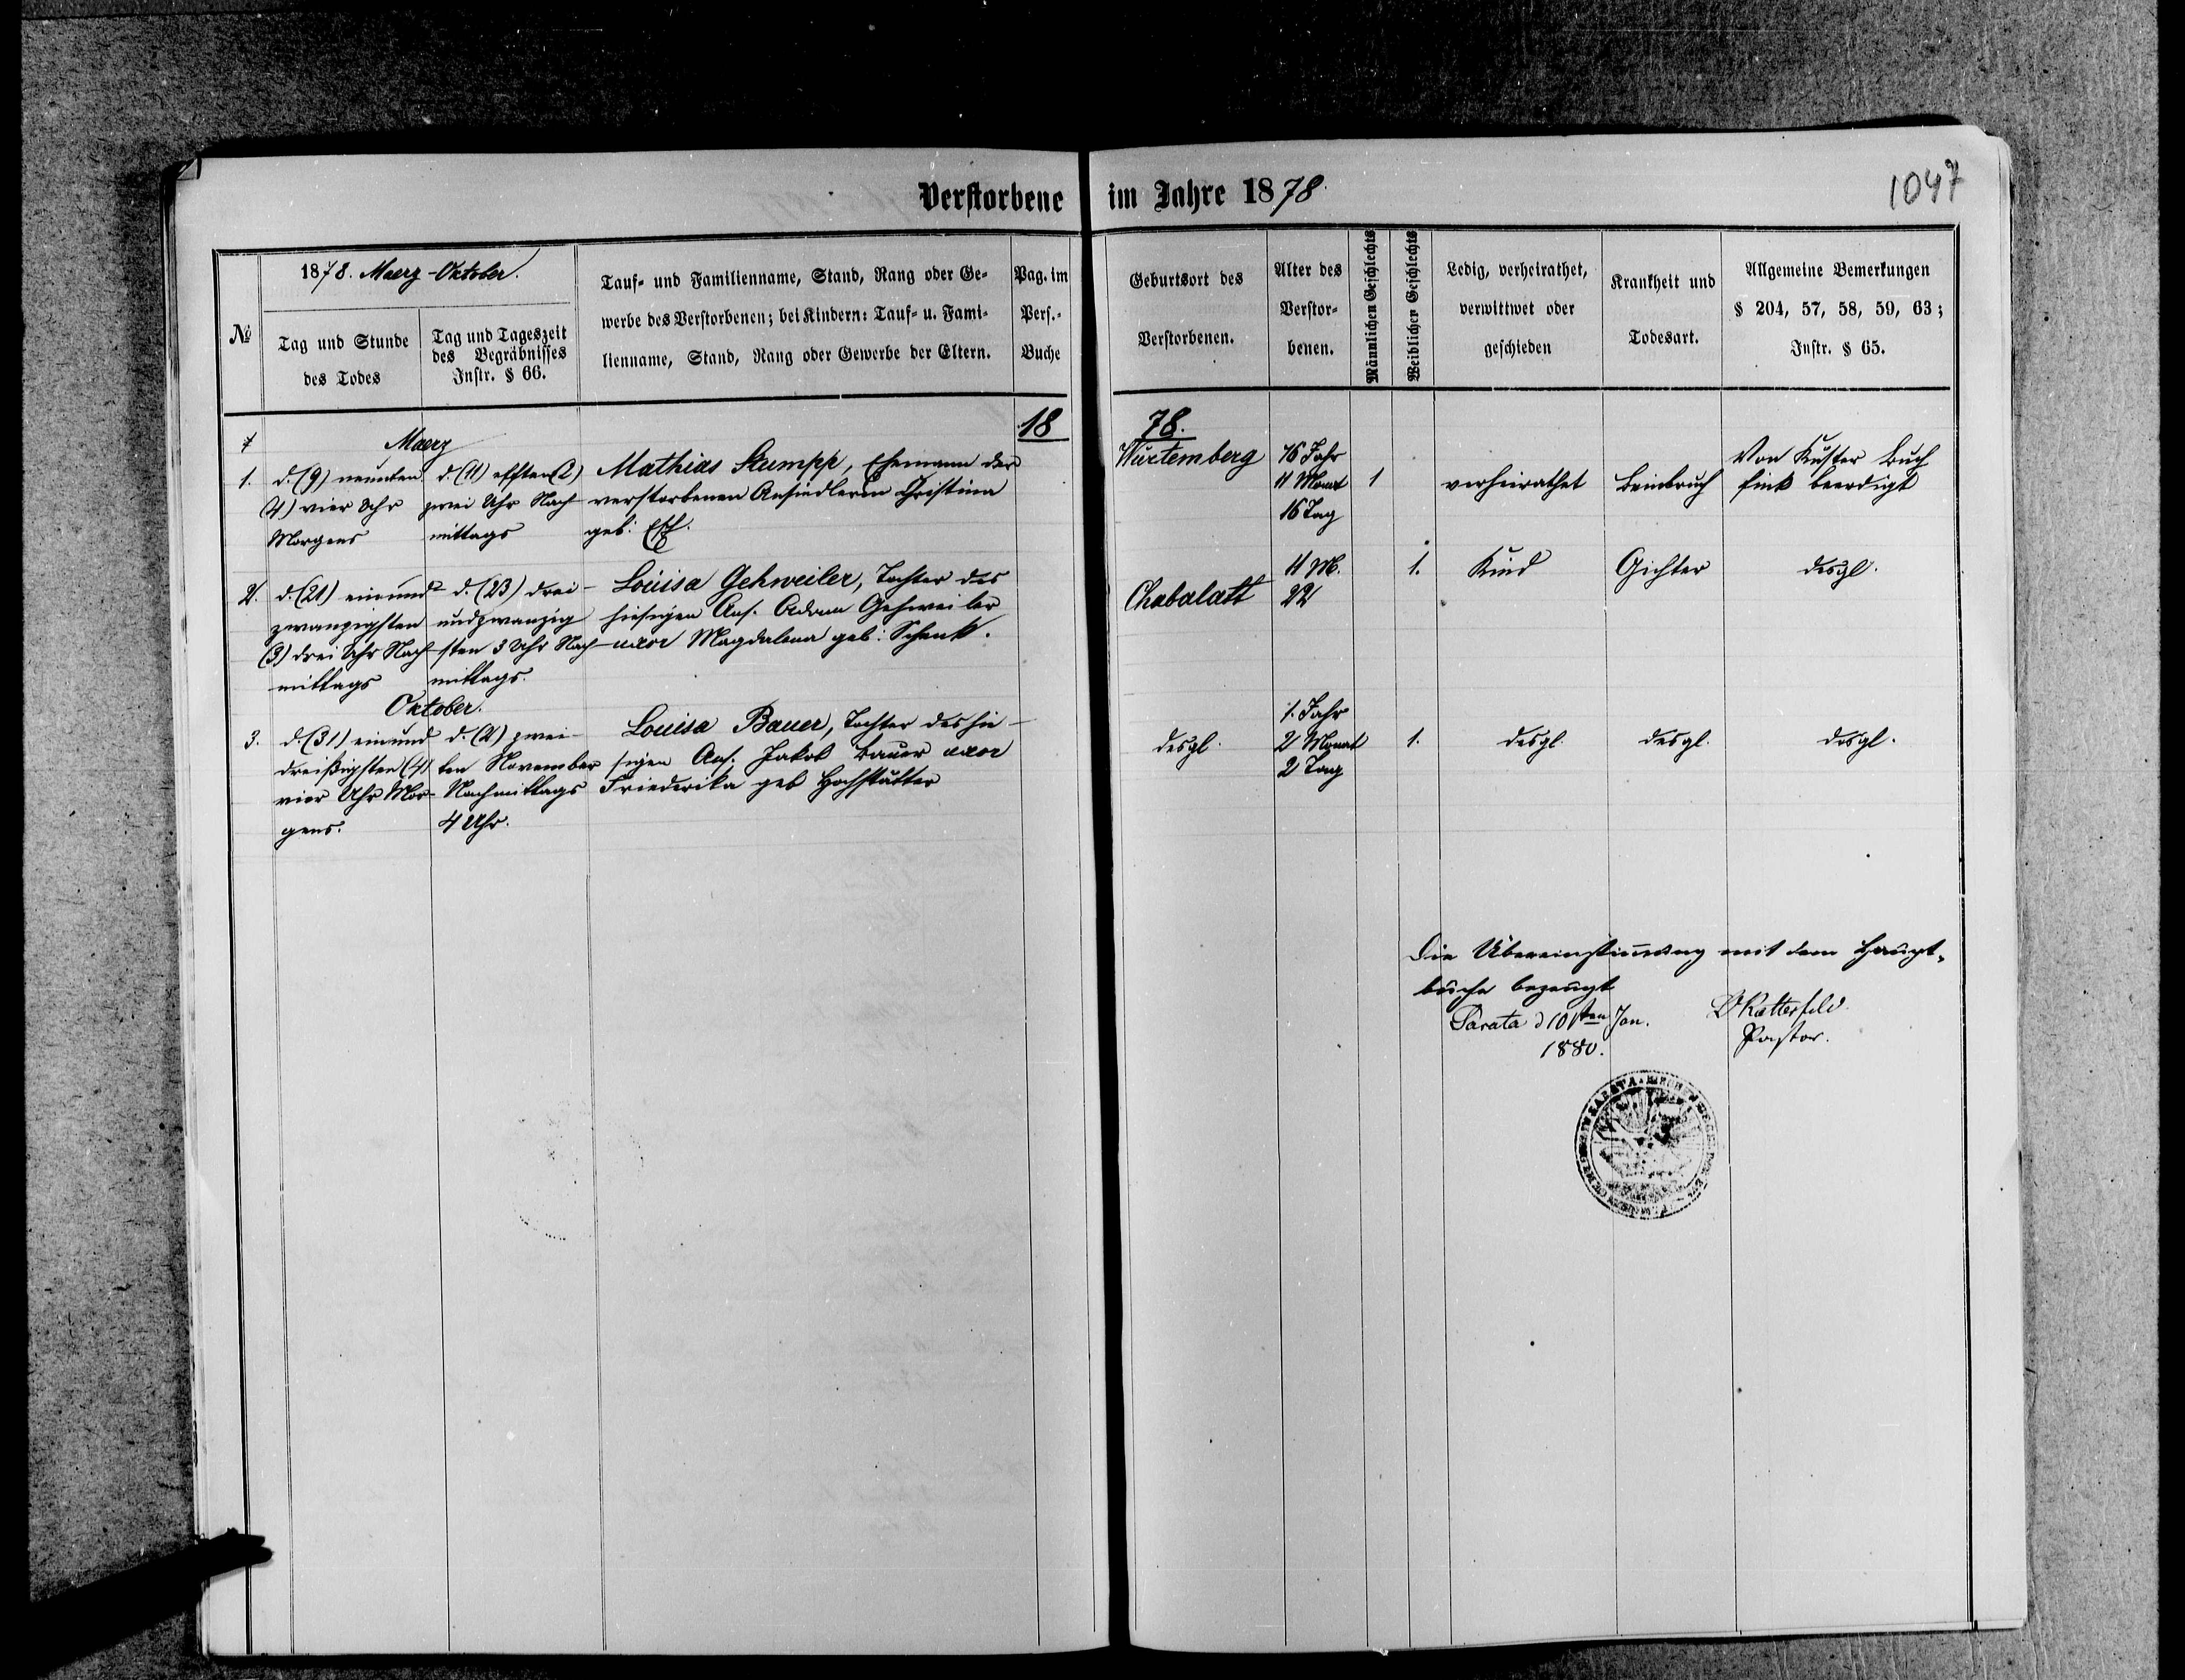 Verstorbene im Jahre 1878.
1047
№
1878. Maerz-Oktober.
Tag und Stunde
des Todes
Tag und Tageszeit
des Begräbnisses
Instr. § 66.
Tauf- und Familienname, Stand, Rang oder Ge-
werbe des Verstorbenen; bei Kindern: Tauf- u. Fami-
lienname, Stand, Rang oder Gewerbe der Eltern.
Pag. im
Pers.-
Buche
Geburtsort des
Verstorbenen.
Alter des
Verstor-
benen.
Männlichen Geschlechts
Weiblichen Geschlechts
Ledig, verheirathet,
verwittwet oder
geschieden
Krankheit und
Todesart.
Allgemeine Bemerkungen
§ 204, 57, 58, 59, 63;
Instr. § 65.
1878.
Maerz
1.
d. (9) neunten
(4) vier Uhr
Morgens
d. (11) elften (2)
zwei Uhr Nach-
mittags
Mathias Stumpp, Ehemann der
verstorbenen Ansiedlerin Christina
geb:
Würtemberg
76 Jahr
11 Monat
16 Tag
1
verheirathet
Beinbruch
Von Küster Buch
fink beerdigt
2.
d. (21) einund
zwanzigsten
(3) drei Uhr Nach-
mittags
d. (23) drei-
undzwanzig
sten 3 Uhr Nach-
mittags.
Louisa Gehweiler, Tochter des
hiesigen Ans. Adam Gehweiler
uxor Magdalena geb: Schenk.
Chabalatt
11 M.
22
1.
Kind
Gichter
desgl.
Oktober.
3.
d. (31) einund
dreißigsten (4)
vier Uhr Mor-
gens.
d. (2) zwei-
ten November
Nachmittags
4 Uhr.
Louisa Bauer, Tochter des hie-
sigen Ans. Jakob Bauer uxor
Friederika geb Hochstätter
desgl.
1. Jahr
2 Monat
2 Tag
1.
desgl.
desgl.
desgl.
Die Übereinstimmung mit dem Haupt-
buche bezeugt
Sarata d 10ten Jan.
1880.
Katterfeld
Pastor.
SARATA